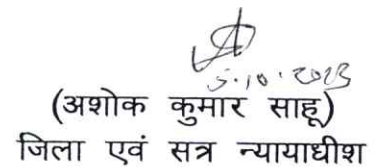 5.10.2023
(अशोक कुमार साहू)
जिला एवं सत्र न्यायाधीश